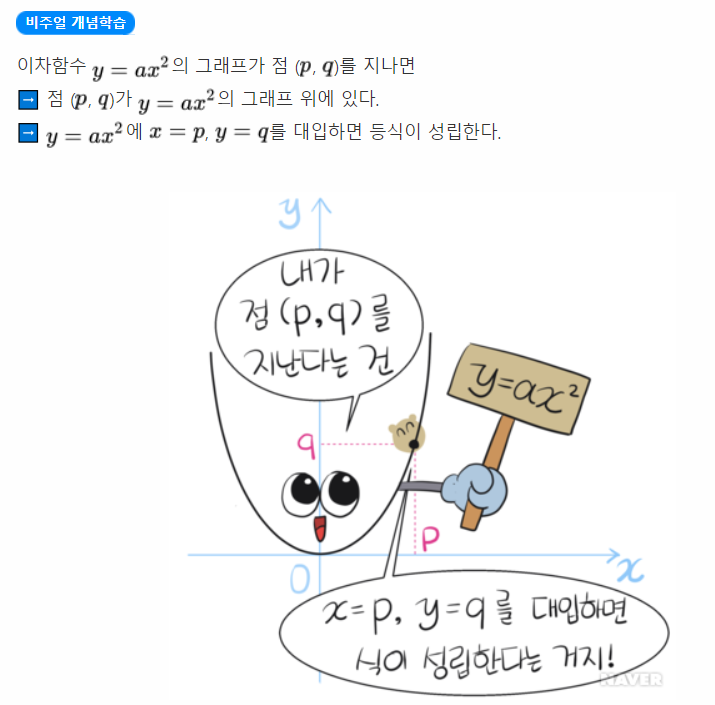 비주얼 개념학습
이차함수 y = ax²의 그래프가 점 (p, q)를 지나면
➡ 점 (p, q)가 y = ax²의 그래프 위에 있다.
➡ y = ax²에 x = p, y = q를 대입하면 등식이 성립한다.
y
내가
점 (p, q)를
지난다는 건
y=ax²
q
p
O
x
x=p, y=q를 대입하면
식이 성립한다는 거지!
NAVER